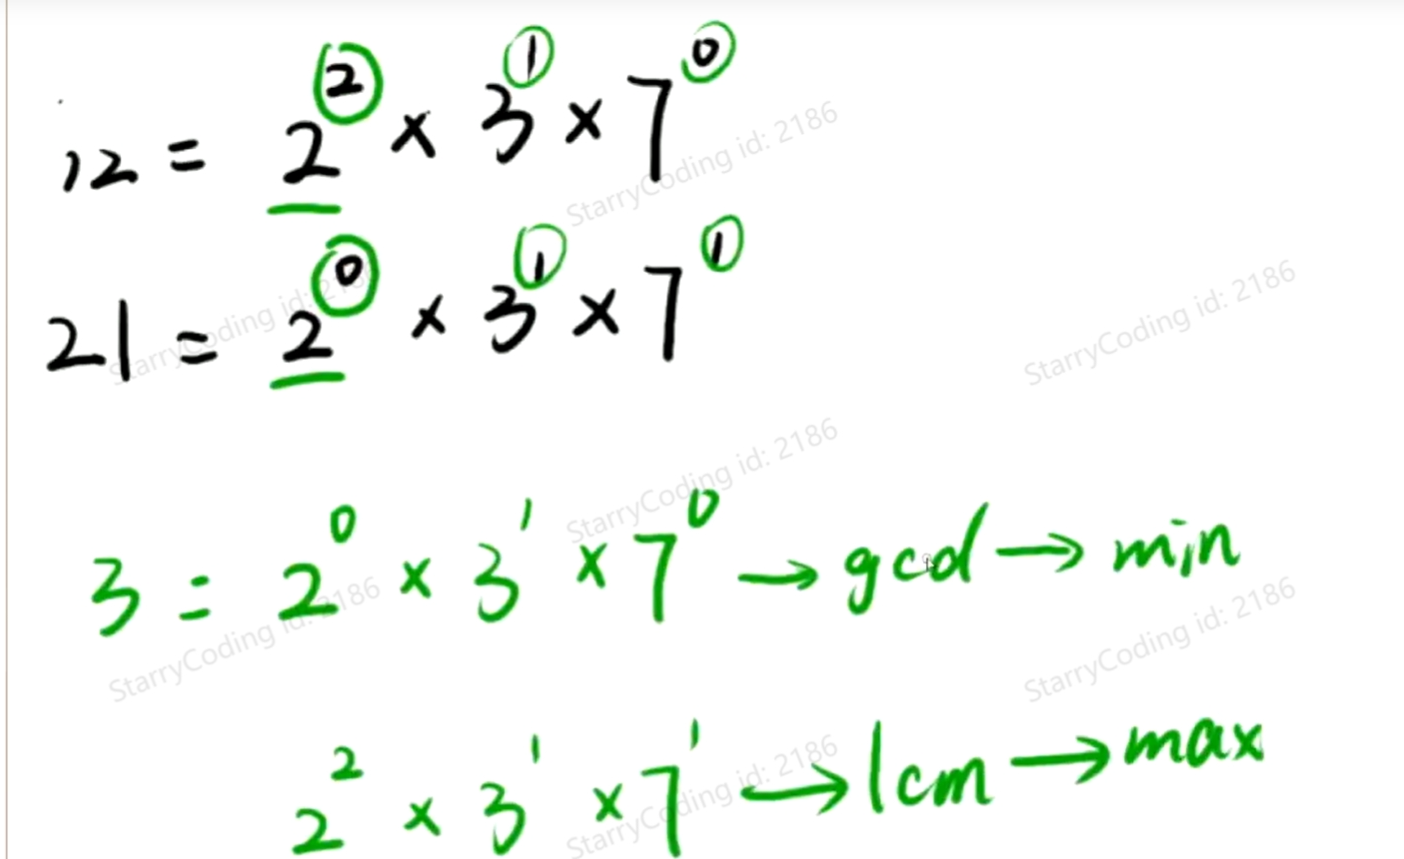 12 = 2² × 3¹ × 7⁰
21 = 2⁰ × 3¹ × 7¹
3 = 2⁰ × 3¹ × 7⁰ → gcd → min
2² × 3¹ × 7¹ → lcm → max
StarryCoding id: 2186
StarryCoding id: 2186
StarryCoding id: 2186
StarryCoding id: 2186
StarryCoding id: 2186
StarryCoding id: 2186
StarryCoding id: 2186